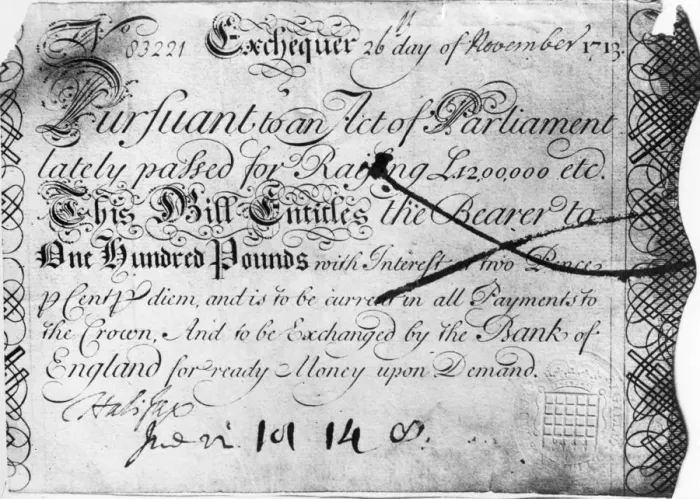 No 83221 Exchequer 26th day of November 1713.
Pursuant to an Act of Parliament
lately passed for Raising £1200,000 etc.
This Bill Entitles the Bearer to
One Hundred Pounds with Interest at two Pence
p Cent p diem, and is to be current in all Payments to
the Crown, And to be Exchanged by the Bank of
England for ready Money upon Demand.
Halifax
101 14 8.